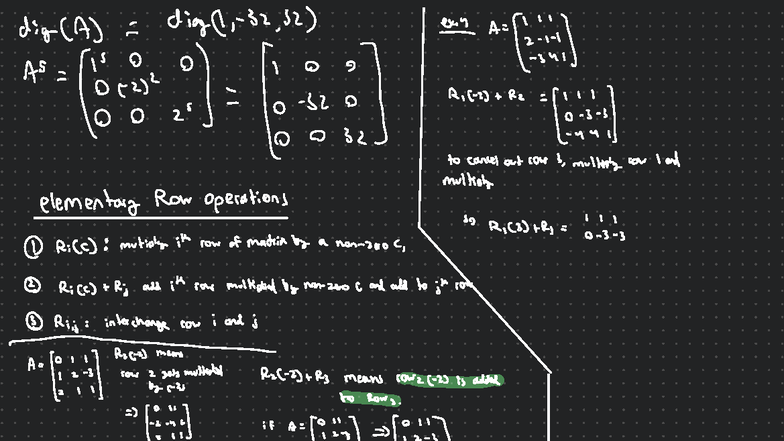 dig(A) = dig(1,-32,32)
A⁵ = (1⁵ 0 0
0 (-2)² 0
0 0 2⁵) = [1 0 0
0 -32 0
0 0 32]
elementary Row operations
① Ri(c) : mutiply iᵗʰ row of matrix by a non-zero c,
② Ri(c) + Rj add iᵗʰ row multiplied by non-zero c and add to jᵗʰ row
③ Ri,j : interchange row i and j
A = [0 1 1
1 2 -3
2 1 1]
R2(-2) means
row 2 gets multiplied
by (-2)
⇒ [0 1 1
-2 -4 6
2 1 1]
R2(-2)+R3 means row2 (-2) is added
to Row3
if A = [0 1 1
⇒ [0 1 1
1 2 -3
A = (1 1 1
2 -1 -1
-3 4 1)
R1(-2) + R2 = [1 1 1
0 -3 -3
-4 4 1]
to cancel out row 3, multiply row 1 and
multiply
so R1(3)+R3 = 1 1 1
0 -3 -3